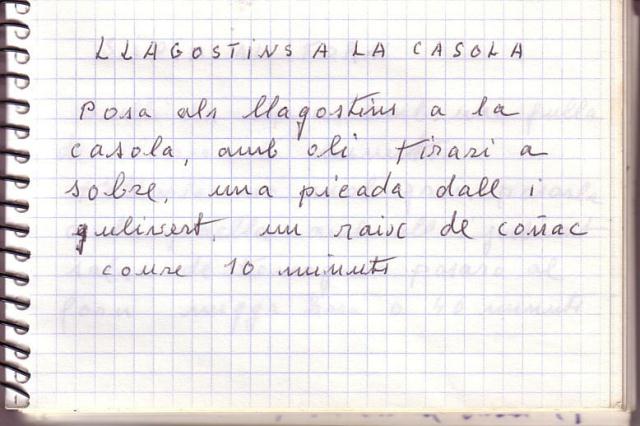 LLAGOSTINS A LA CASOLA
Posa als llagostins a la
casola, amb oli tirari a
sobre, una picada dall i
julivert, un raix de coñac
coure 10 minuts